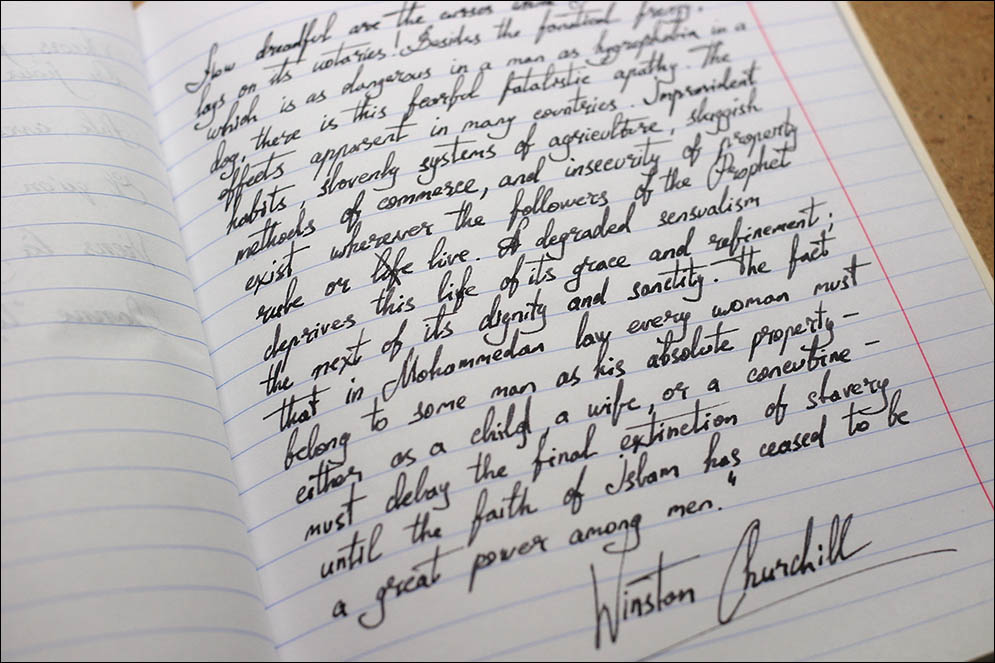 How dreadful are the curses
lays on its votaries! Besides the fanatical frenzy,
which is as dangerous in a man as hygrophobia in a
dog, there is this fearful fatalistic apathy. The
effects apparent in many countries. Improvident
habits, slovenly systems of agriculture, sluggish
methods of commerce, and insecurity of property
exist wherever the followers of the Prophet
rule or life live. A degraded sensualism
deprives this life of its grace and refinement;
the next of its dignity and sanctity. The fact
that in Mohammedan law every woman must
belong to some man as his absolute property-
either as a child, a wife, or a concubine-
must delay the final extinction of slavery
until the faith of Islam has ceased to be
a great power among men."
Winston Churchill